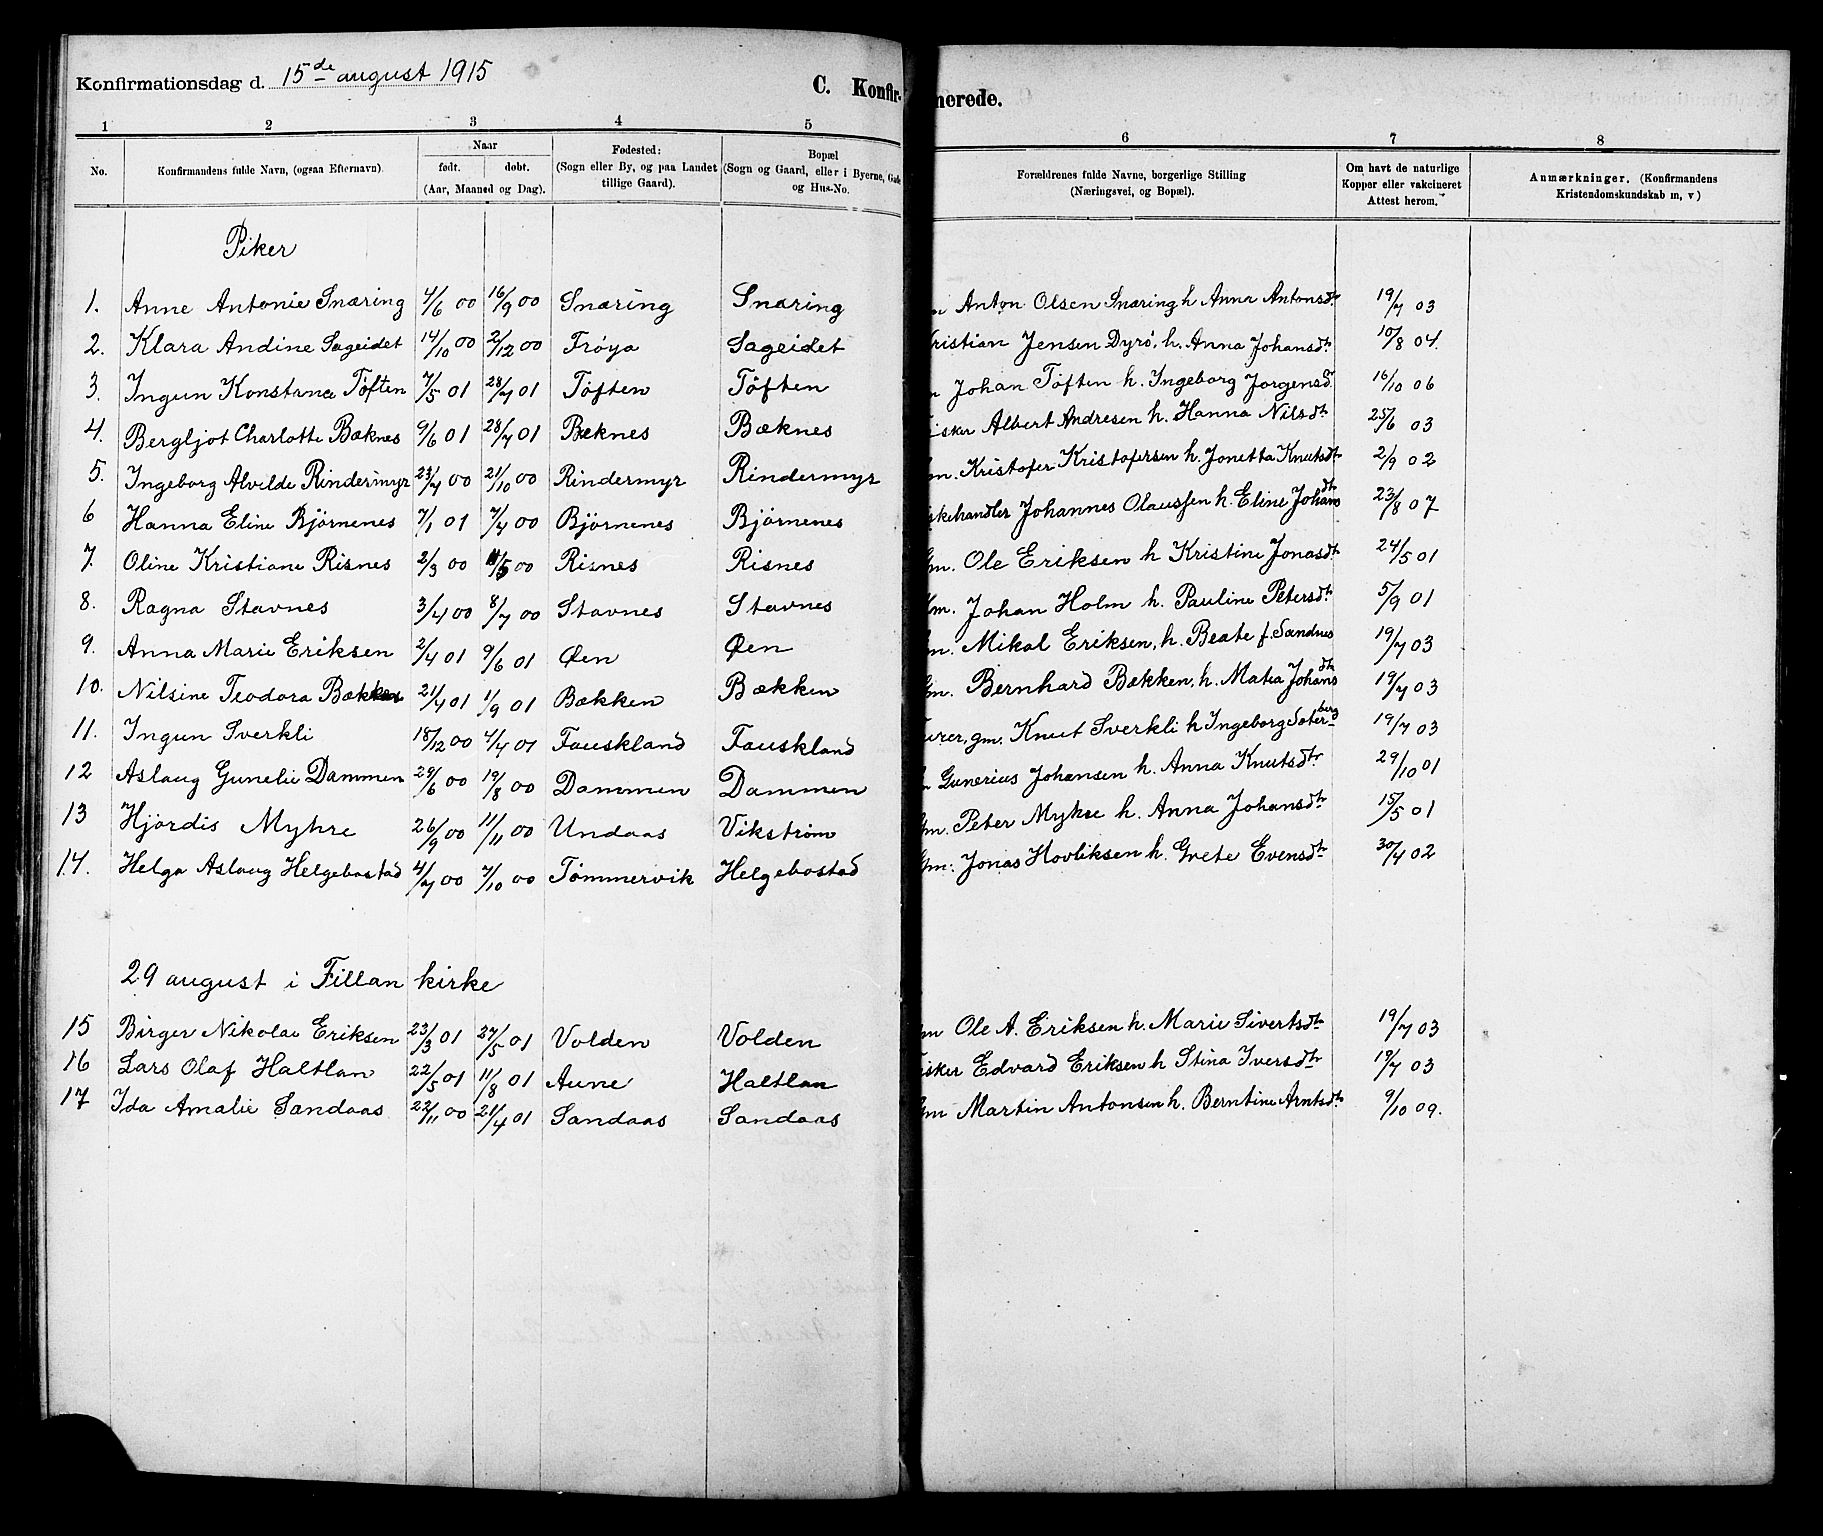 Konfirmationsdag d. 15de august 1915 C. Konfir- merede.
1 2 3 4 5 6 7 8
No. Konfirmandens fulde Navn, (ogsaa Efternavn) Naar født. døbt. (Aar, Maaned og Dag). Fødested: (Sogn eller By, og paa Landet tillige Gaard). Bopæl (Sogn og Gaard, eller i Byerne, Gade og Hus-No. Forældrenes fulde Navne, borgerlige Stilling (Næringsvei, og Bopæl). Om havt de naturlige Kopper eller vakcineret Attest herom. Anmærkninger. (Konfirmandens Kristendomskundskab m, v)
Piker
1. Anne Antonie Snæring 4/6 00 16/9 00 Snæring Snæring Anton Olsen Snæring h Anna Antonsdtr 19/7 03
2. Klara Andine Sageidet 14/10 00 2/12 00 Frøya Sageidet Kristian Jensen Dyrø, h. Anna Johansdtr 10/8 04.
3. Ingun Konstanse Tøften 7/5 01 28/7 01 Tøften Tøften Johan Tøften h. Ingeborg Jørgensdr 16/10 06
4. Bergljot Charlotte Bæknes 9/6 01 28/7 01 Bæknes Bæknes isker Albert Andresen h. Hanna Nilsdtr 25/6 03
5. Ingeborg Alvilde Rindermyr 23/7 00 21/10 00 Rindermyr Rindermyr m. Kristofer Kristofersen h. Jonetta Knutsdtr 2/9 02
6 Hanna Eline Bjørnenes 7/1 01 7/4 00 Bjørnenes Bjørnenes iskehandler Johannes Olaussen h. Eline Johansdtr 23/8 07
7. Oline Kristiane Risnes 2/3 00 11/5 00 Risnes Risnes Gm. Ole Eriksen h Kristine Jonasdtr 24/5 01
8. Ragna Stavnes 3/4 00 8/7 00 Stavnes Stavnes m. Johan Holm h. Pauline Petersdtr 5/9 01
9. Anna Marie Eriksen 2/4 01 9/6 01 Øen Øen m. Mikal Eriksen, h. Beate f. Sandnes 19/7 03
10. Nilsine Teodora Bækken 21/4 01 1/9 01 Bækken Bækken Gm. Bernhard Bækken, h. Matea Johansdtr 19/7 03
11. Ingun Sverkli 18/12 00 4/4 01 Fauskland Fauskland urer, gm. Knut Sverkli h Ingeborg Soterberg 19/7 03
12 Aslaug Gunelie Dammen 29/6 00 19/8 00 Dammen Dammen Gunerius Johansen h. Anna Knutsdtr 29/10 01
13 Hjørdis Myhre 26/9 00 11/11 00 Undaas Vikstrøm Gm. Peter Myhre h. Anna Johansdtr 15/5 01
14. Helga Aslaug Helgebostad 4/7 00 7/10 00 Tømmervik Helgebostad Gm. Jonas Hovliksen h. Grete Evensdtr 30/4 02
29 august i Fillan kirke
15 Birger Nikolai Eriksen 23/3 01 27/5 01 Volden Volden Gm Ole A. Eriksen h. Marie Sivertsdtr 19/7 03
16 Lars Olaf Haltlan 22/5 01 11/8 01 Aune Haltlan isker Edvard Eriksen h Stina Iversdtr 19/7 03
17 Ida Amalie Sandaas 22/11 00 21/4 01 Sandaas Sandaas Gm Martin Antonsen h. Berntine Arntsdtr 9/10 09.